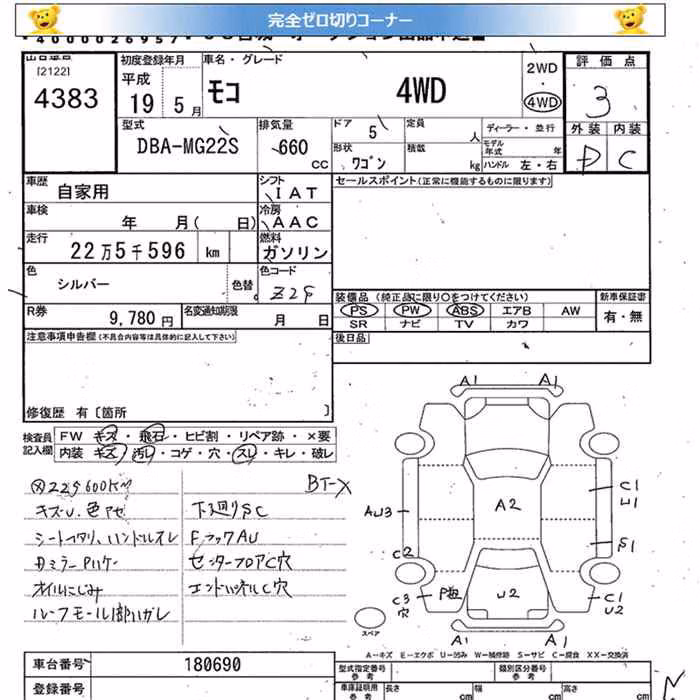 完全ゼロ切りコーナー
4000026957
出品番号
[2122]
4383
初度登録年月
平成
19 5月
車名・グレード
モコ 4WD
2WD
4WD
評価点
3
型式
DBA-MG22S
排気量
660
cc
ドア 5
定員 人
ディーラー・並行
形状 ワゴン
積載 kg
モデル年式 年
ハンドル 左・右
外装 内装
D C
車歴 自家用
シフト IAT
セールスポイント(正常に機能するものに限ります)
車検 年 月( 日)
冷房 AAC
走行 22万5千596 km
燃料 ガソリン
色 シルバー 色替
色コード Z2S
装備品(純正品に限り○をつけてください)
新車保証書
PS PW ABS エアB AW
有・無
SR ナビ TV カワ
R券 9,780円
名変通知期限 月 日
注意事項申告欄(不具合内容等は具体的に記入して下さい)
後日品
修復歴 有〔箇所 〕
検査員記入欄
FW キズ・飛石・ヒビ割・リペア跡・×要
内装 キズ・汚レ・コゲ・穴・スレ・キレ・破レ
225600KM BT-X
キズU.色アセ 下廻りSC
シートヘタリ、ハンドルスレ FラックAU
ミラーPハゲ センターフロアC穴
オイルにじみ エンドパネルC穴
ルーフモール1部ハガレ
A1 A1
C1
U1
A2
AU3
S1
C2
C3
穴
U2
C1
U2
スペア
A1 A1
A-キズ E-エクボ U-凹み W-補修跡 S-サビ C-腐食 XX-交換済
車台番号 180690
型式指定番号 参考
類別区分番号 参考
登録番号
車庫証明用 参考
長さ cm
幅 cm
高さ cm